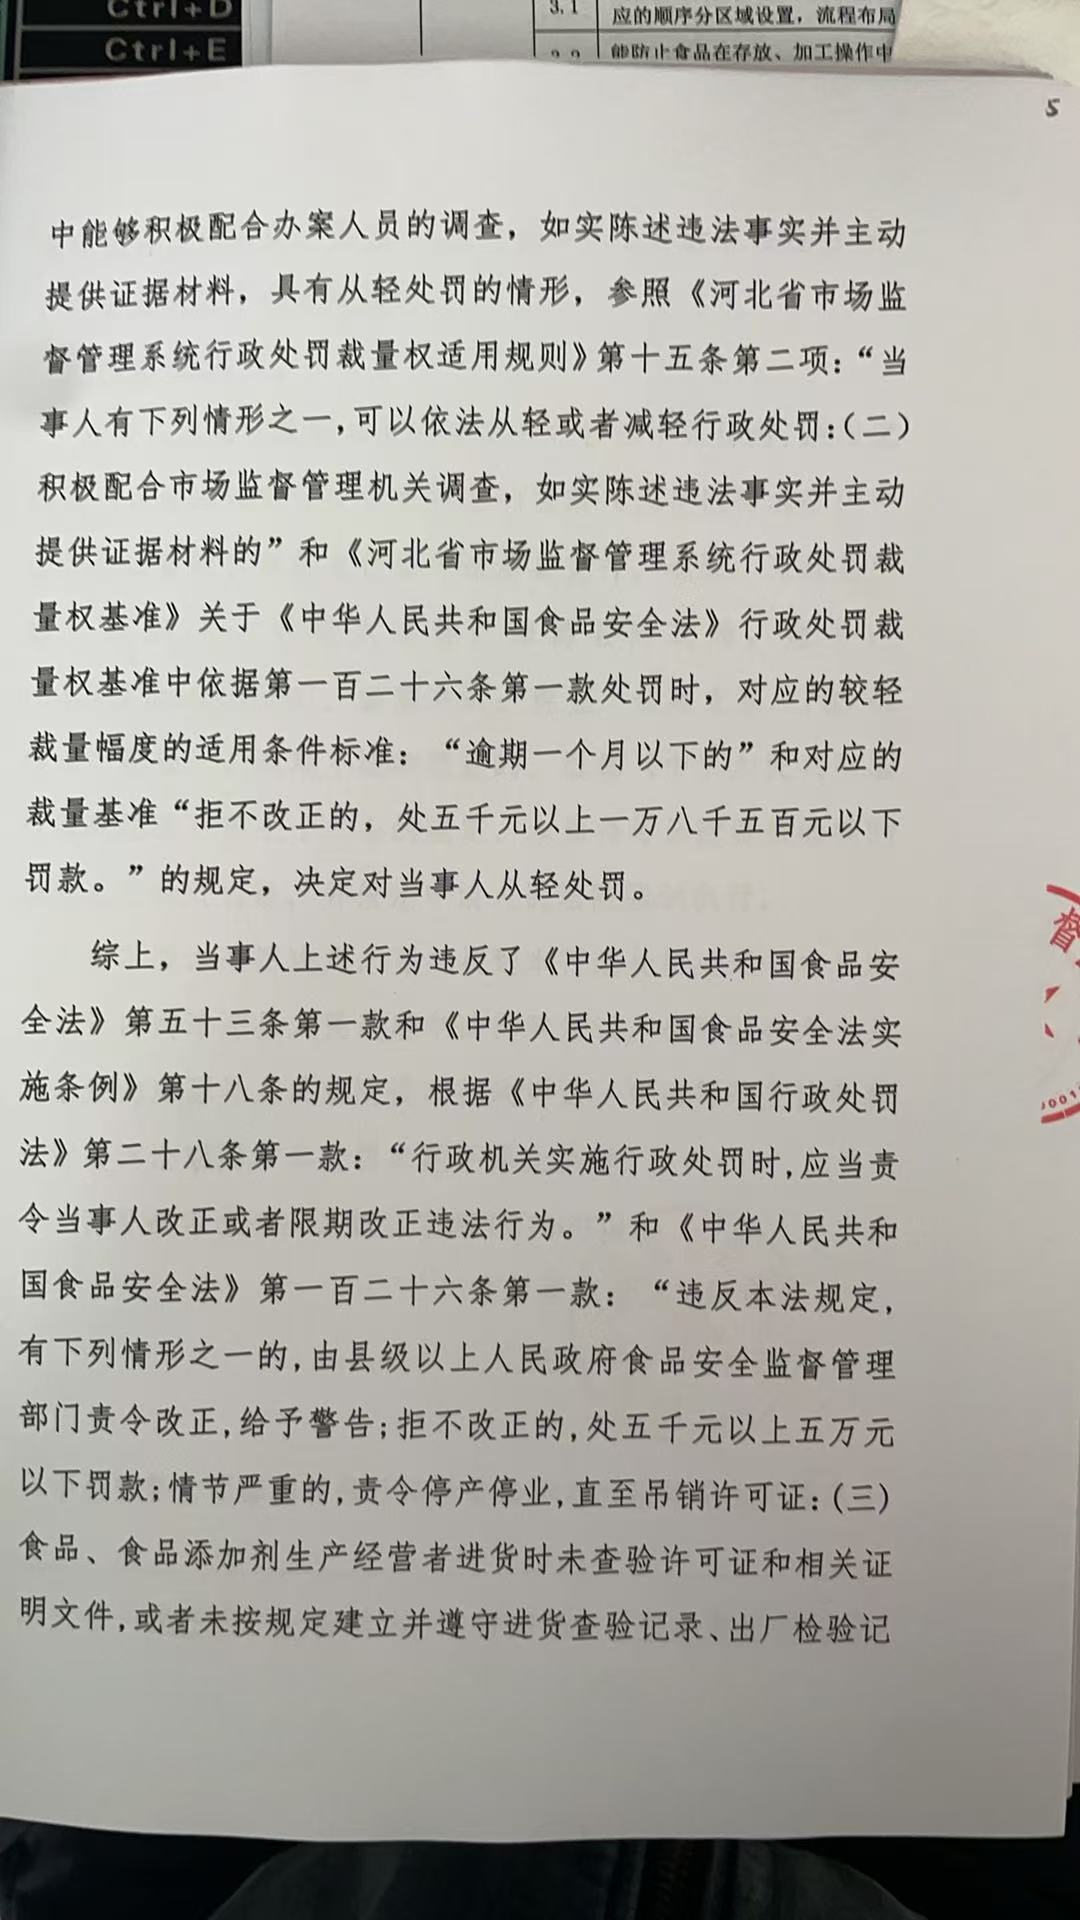 Ctrl+D
Ctrl+E
3.1
应的顺序分区域设置，流程布局
能防止食品在存放、加工操作中
5
中能够积极配合办案人员的调查，如实陈述违法事实并主动
提供证据材料，具有从轻处罚的情形，参照《河北省市场监
督管理系统行政处罚裁量权适用规则》第十五条第二项：“当
事人有下列情形之一，可以依法从轻或者减轻行政处罚：（二）
积极配合市场监督管理机关调查，如实陈述违法事实并主动
提供证据材料的”和《河北省市场监督管理系统行政处罚裁
量权基准》关于《中华人民共和国食品安全法》行政处罚裁
量权基准中依据第一百二十六条第一款处罚时，对应的较轻
裁量幅度的适用条件标准：“逾期一个月以下的”和对应的
裁量基准“拒不改正的，处五千元以上一万八千五百元以下
罚款。”的规定，决定对当事人从轻处罚。
综上，当事人上述行为违反了《中华人民共和国食品安
全法》第五十三条第一款和《中华人民共和国食品安全法实
施条例》第十八条的规定，根据《中华人民共和国行政处罚
法》第二十八条第一款：“行政机关实施行政处罚时，应当责
令当事人改正或者限期改正违法行为。”和《中华人民共和
国食品安全法》第一百二十六条第一款：“违反本法规定，
有下列情形之一的，由县级以上人民政府食品安全监督管理
部门责令改正，给予警告；拒不改正的，处五千元以上五万元
以下罚款；情节严重的，责令停产停业，直至吊销许可证：（三）
食品、食品添加剂生产经营者进货时未查验许可证和相关证
明文件，或者未按规定建立并遵守进货查验记录、出厂检验记
督